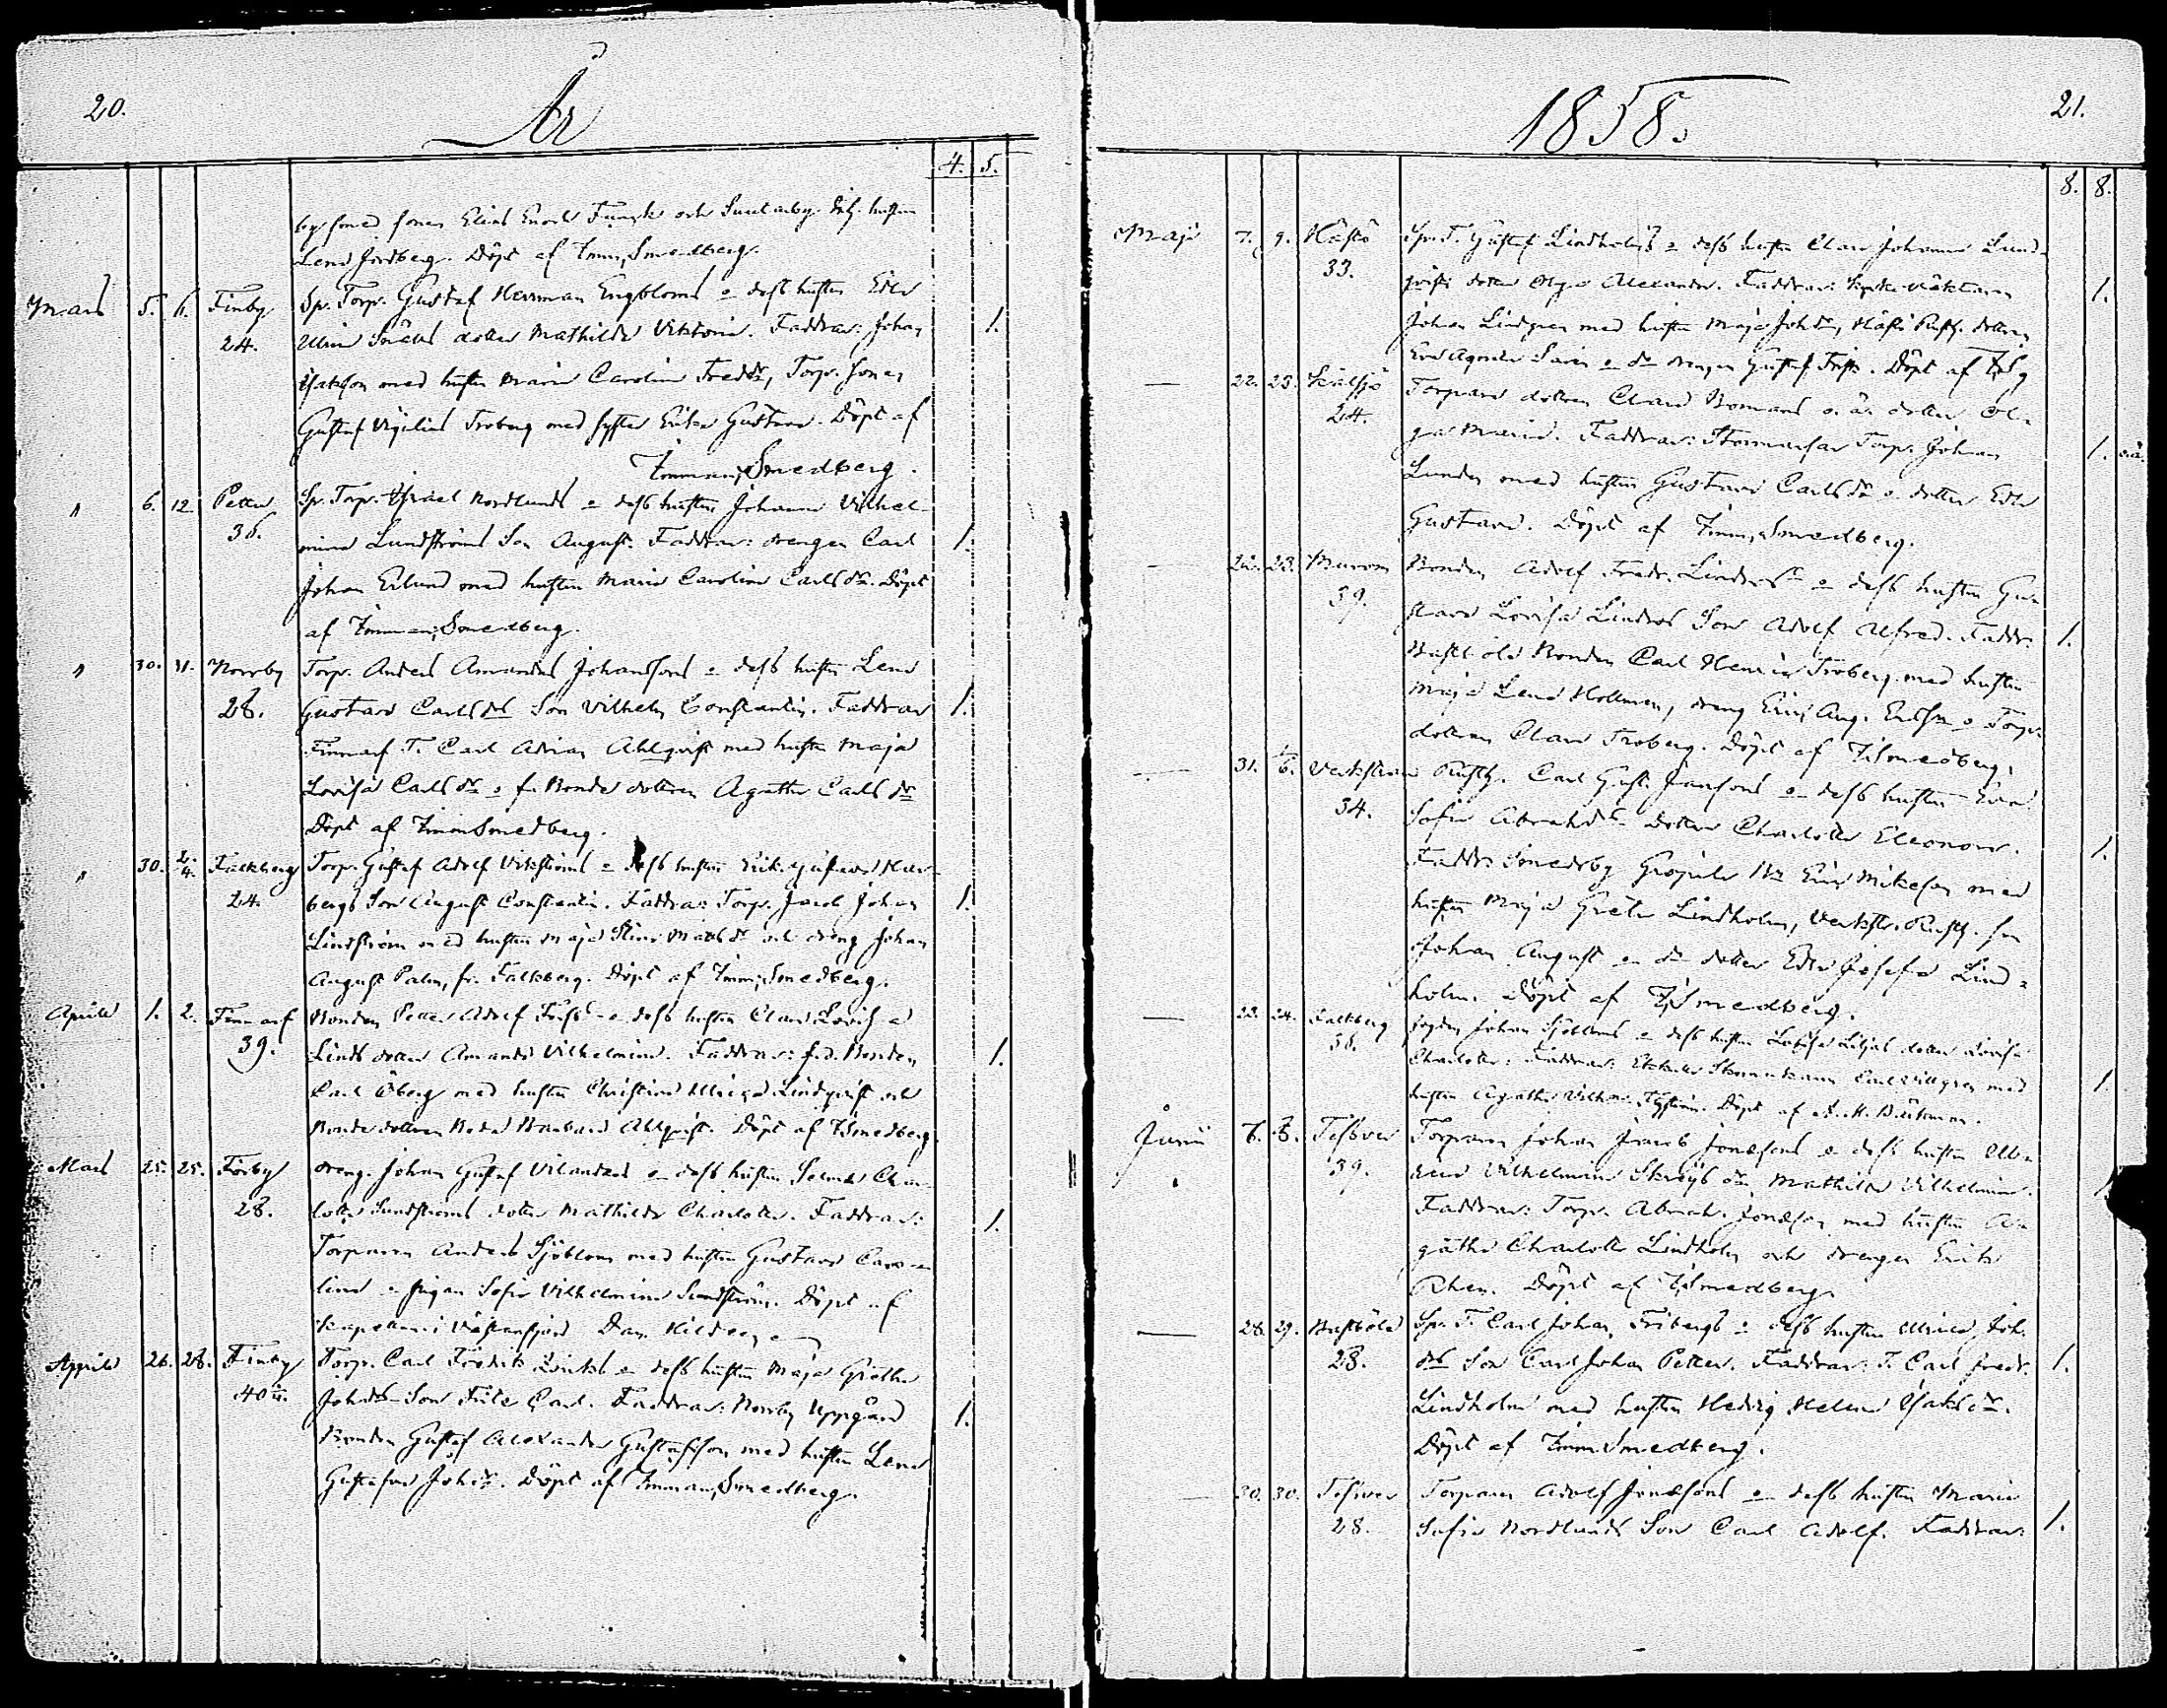 20.
År
4. 5.
by smed sonen Elias Enoch Funck och Sundarby hustru
Lena Jordberg. Döpt af Imm. Smedberg.
Mars 5. 6. Finby Sp. Torp. Gustaf Herrman Engbloms o dess hustru Edla
24. Ulrica dotter Mathilda Viktoria. Faddrar: Johan 1.
Isakson med hustru Maria Carolina Fredsdr, Torp. sonen
Gustaf Vigilius Troberg med syster Erika Gustava. Döpt af
Imman. Smedberg.
" 6. 12 Petter Sp. Torp. Israel Nordlunds o dess hustru Johanna Vilhel-
36. mina Lundströms Son August. Faddrar: drengen Carl 1.
Johan Erlund med hustru Maria Carolina Carlsdr. Döpt
af Imman. Smedberg.
" 30. 31. Norrby Torp. Anders Amandus Johanssons o dess hustru Lena
28. Gustava Carlsdrs Son Vilhelm Constantin. Faddrar 1.
Finnarf T. Carl Adrian Ahlqvist med hustru Maja
Lovisa Carlsdr o f. Bonde dottren Agatha Carlsdr
Döpt af Imm Smedberg.
" 30. 2/4. Falkberg Torp. Gustaf Adolf Vikströms o dess hustru Erik. Gustava
24. bergs Son August Constantin. Faddrar: Torp. Jacob Johan 1.
Lindström med hustru Maja Stina Matsdr och dreng Johan
August Palm, fr. Falkberg. Döpt af Imm. Smedberg.
Aprill 1. 2. Finnarf Bonden Petter Adolf Friis o dess hustru Clara Lovisa
39. Linds dotter Amanda Vilhelmina. Faddrar: f.d. Bonden 1.
Carl Öberg med hustru Christina Ulrica Lindqvist och
Bonde dottren Beda Barbara Ahlqvist. Döpt af I Smedberg.
Mars 25. 25. Förby dreng. Johan Gustaf Vilanders o dess hustru Selma Char-
28. lotta Sundströms dotter Mathilda Charlotta. Faddrar: 1.
Torparen Anders Sjöblom med hustru Gustava Caro-
lina o pigan Sofia Vilhelmina Sundström. Döpt af
Kapellan i Västanfjärd Dan.
Aprill 26. 28. Finby Torp. Carl Fredrik o dess hustru Maja Gretha
40 Johsdrs Son Frite Carl. Faddrar: Norrby Uppgård 1.
Bonden Gustaf Alexander Gustafsson med hustru Lena
Gustafva Johsdr. Döpt af Imman. Smedberg.
1858.
21.
8. 8.
Maji 7. 9. Hästö Sp. T. Gustaf Lindholms o dess hustru Clara Johanna Lund-
33. qvists dotter Olga Alexandra. Faddrar: 1.
Johan Lindgren med hustru Maja Johsdr, Hästö Rusth. dottren
Eva Agneta o dr drengen Gustaf Friis. Döpt af I Sg
— 22. 23. Torpare dottren Clara Bomans o. ä. dotter Ol-
24. ga Maria. Faddrar: Torp. Johan 1. oä.
Lunden med hustru Gustava Carlsdr o. dotter Edla
Gustava. Döpt af Imm. Smedberg.
— 22. 23. Bonden Adolf Fredr. Lindroos o dess hustru Gu-
39. stava Lovisa Lindros Son Adolf Alfred. Faddr: 1.
Bastböle Bonden Carl Henric Troberg med hustru
Maja Lena Hollmen, dreng Eric Aug. Ericsson o Torp.
dottren Clara Troberg. Döpt af I Smedberg.
— 31. 1/6. Verkström Rusth. Carl Gust. Jansons o dess hustru Eva
34. Sofia Abrahdrs dotter Charlotta Eleonora. 1.
Faddr: Smedsby Bn Eric Mikelson med
hustru Maja Greta Lindholm, Verkstr. Rusth. son
Johan August o dr dotter Edla Josefa Lind-
holm. Döpt af I Smedberg.
— 23. 24. Falkberg Johan Sjöbloms o dess hustru Lovisa Liljas dotter Lovisa
38. Charlotta. Faddrar: Carl Villgren med 1.
hustru Agatha Vilhma. Döpt af A. H. Bäckman.
Junii 6. 8. Tessvar Torparen Johan Jacob Jonassons o dess hustru Ulri-
39. Vilhelmina dr Mathilda Vilhelmina. 1.
Faddrar: Torp. Abrah. Jonasson med hustru A-
gatha Charlotta Lindholm och drengen Erik
Rhen. Döpt af I Smedberg.
— 28. 29. Bastböle Sp. T. Carl Johan Fribergs o dess hustru Ulrica Joh.
28. drs Son Carl Johan Petter. Faddrar: T. Carl Fredr. 1.
Lindholm med hustru Hedvig Helena Isaksdr.
Döpt af Imm Smedberg.
— 30. 30. Tessvar Torparen Adolf Jonassons o dess hustru Maria
28. Sofia Nordlunds Son Carl Adolf. Faddrar: 1.